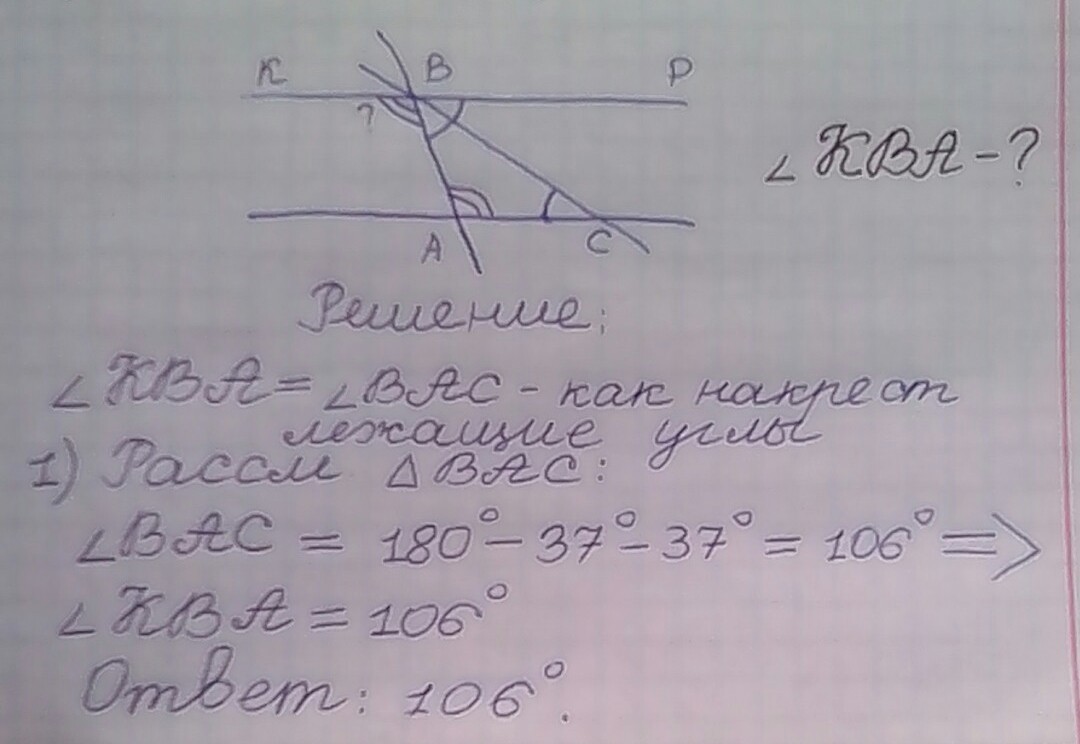 K B P
?
∠KBA-?
A C
Решение:
∠KBA=∠BAC- как накрест
лежащие углы
1) Рассм △BAC:
∠BAC = 180°-37°-37°= 106°=>
∠KBA = 106°
Ответ: 106°.